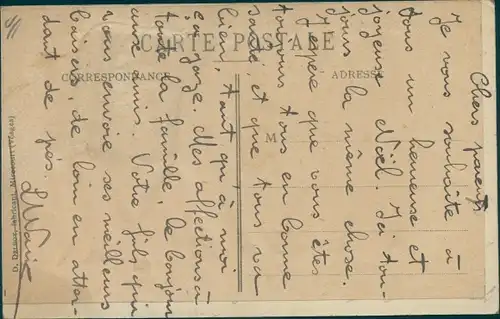 CARTE POSTALE
CORRESPONDANCE
ADRESSE
M
Chers parents
Je vous souhaite à
tous un heureuse et
joyeuse Noël. Ici tou-
jours la même chose.
J'espère que vous êtes
toujours tous en bonne
santé, et que tous va
bien, tant qu'à moi
ça gaze. Mes affections à
toute la famille, le bonjour
aux amis. Votre fils qui
vous envoie ses meilleurs
baisers, de loin en atten-
dant de près.